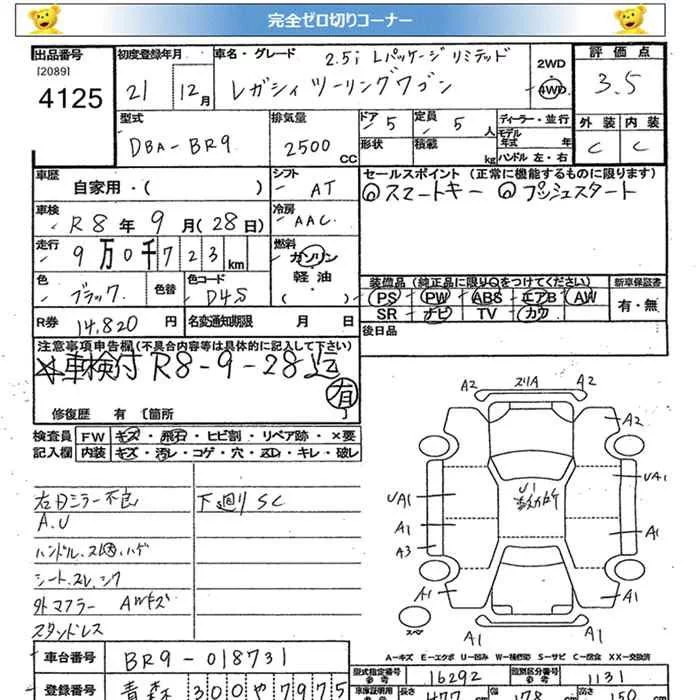 完全ゼロ切りコーナー
出品番号 初度登録年月 車名・グレード 2.5i Lパッケージ リミテッド 2WD 評価点
[2089] 4125 21 12月 レガシィ ツーリングワゴン 4WD 3.5
型式 排気量 ドア 5 定員 5人 ディーラー・並行 外装 内装
DBA-BR9 2500CC 形状 積載 kg モデル年式 年 C C
ハンドル 左・右
車歴 シフト セールスポイント (正常に機能するものに限ります)
自家用・( ) AT ◎スマートキー ◎プッシュスタート
車検 R8年9月(28日) 冷房 AAC
走行 9万0千723km 燃料 ガソリン
軽油
( )
色 ブラック 色替 色コード D4S
装備品(純正品に限り○をつけてください) 新車保証書
PS PW ABS エアB AW 有・無
SR ナビ TV カワ
R券 14,820円 名変通知期限 月 日 後日品
注意事項申告欄(不具合内容等は具体的に記入して下さい)
車検付 R8-9-28迄
有
修復歴 有 〔箇所
検査員 FW キズ・飛石・ヒビ割・リペア跡・×要
記入欄 内装 キズ・汚レ・コゲ・穴・凹・キレ・破レ
右日ミラー不良 下廻り SC
A.U
ハンドル.スレ.ハゲ
シート.スレ.シワ
外マフラー AWキズ
スタッドレス
A2 スリA A2
A2
U1
UA1 UA1
A1 A1
A3
A1 A1
スペア A1 A1
A-キズ E-エクボ U-凹み W-補修跡 S-サビ C-腐食 XX-交換済
車台番号 BR9-018731 型式指定番号 16292 類別区分番号 1131
登録番号 青森 300 や 7975 長さ 477 幅 178 高さ 150